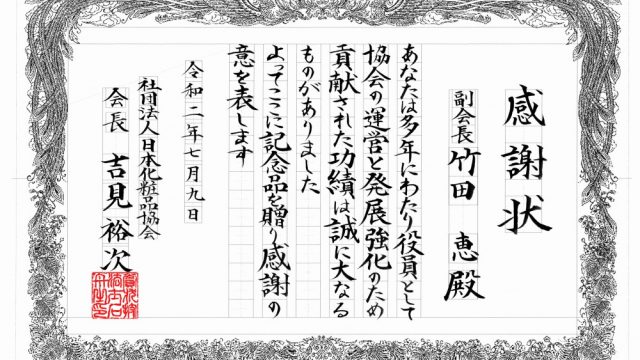 感謝状
副会長 竹田 恵 殿
あなたは多年にわたり役員として
協会の運営と発展強化のため
貢献された功績は誠に大なる
ものがありました
よってここに記念品を贈り感謝の
意を表します
令和二年七月九日
社団法人日本化粧品協会
会長 吉見裕次